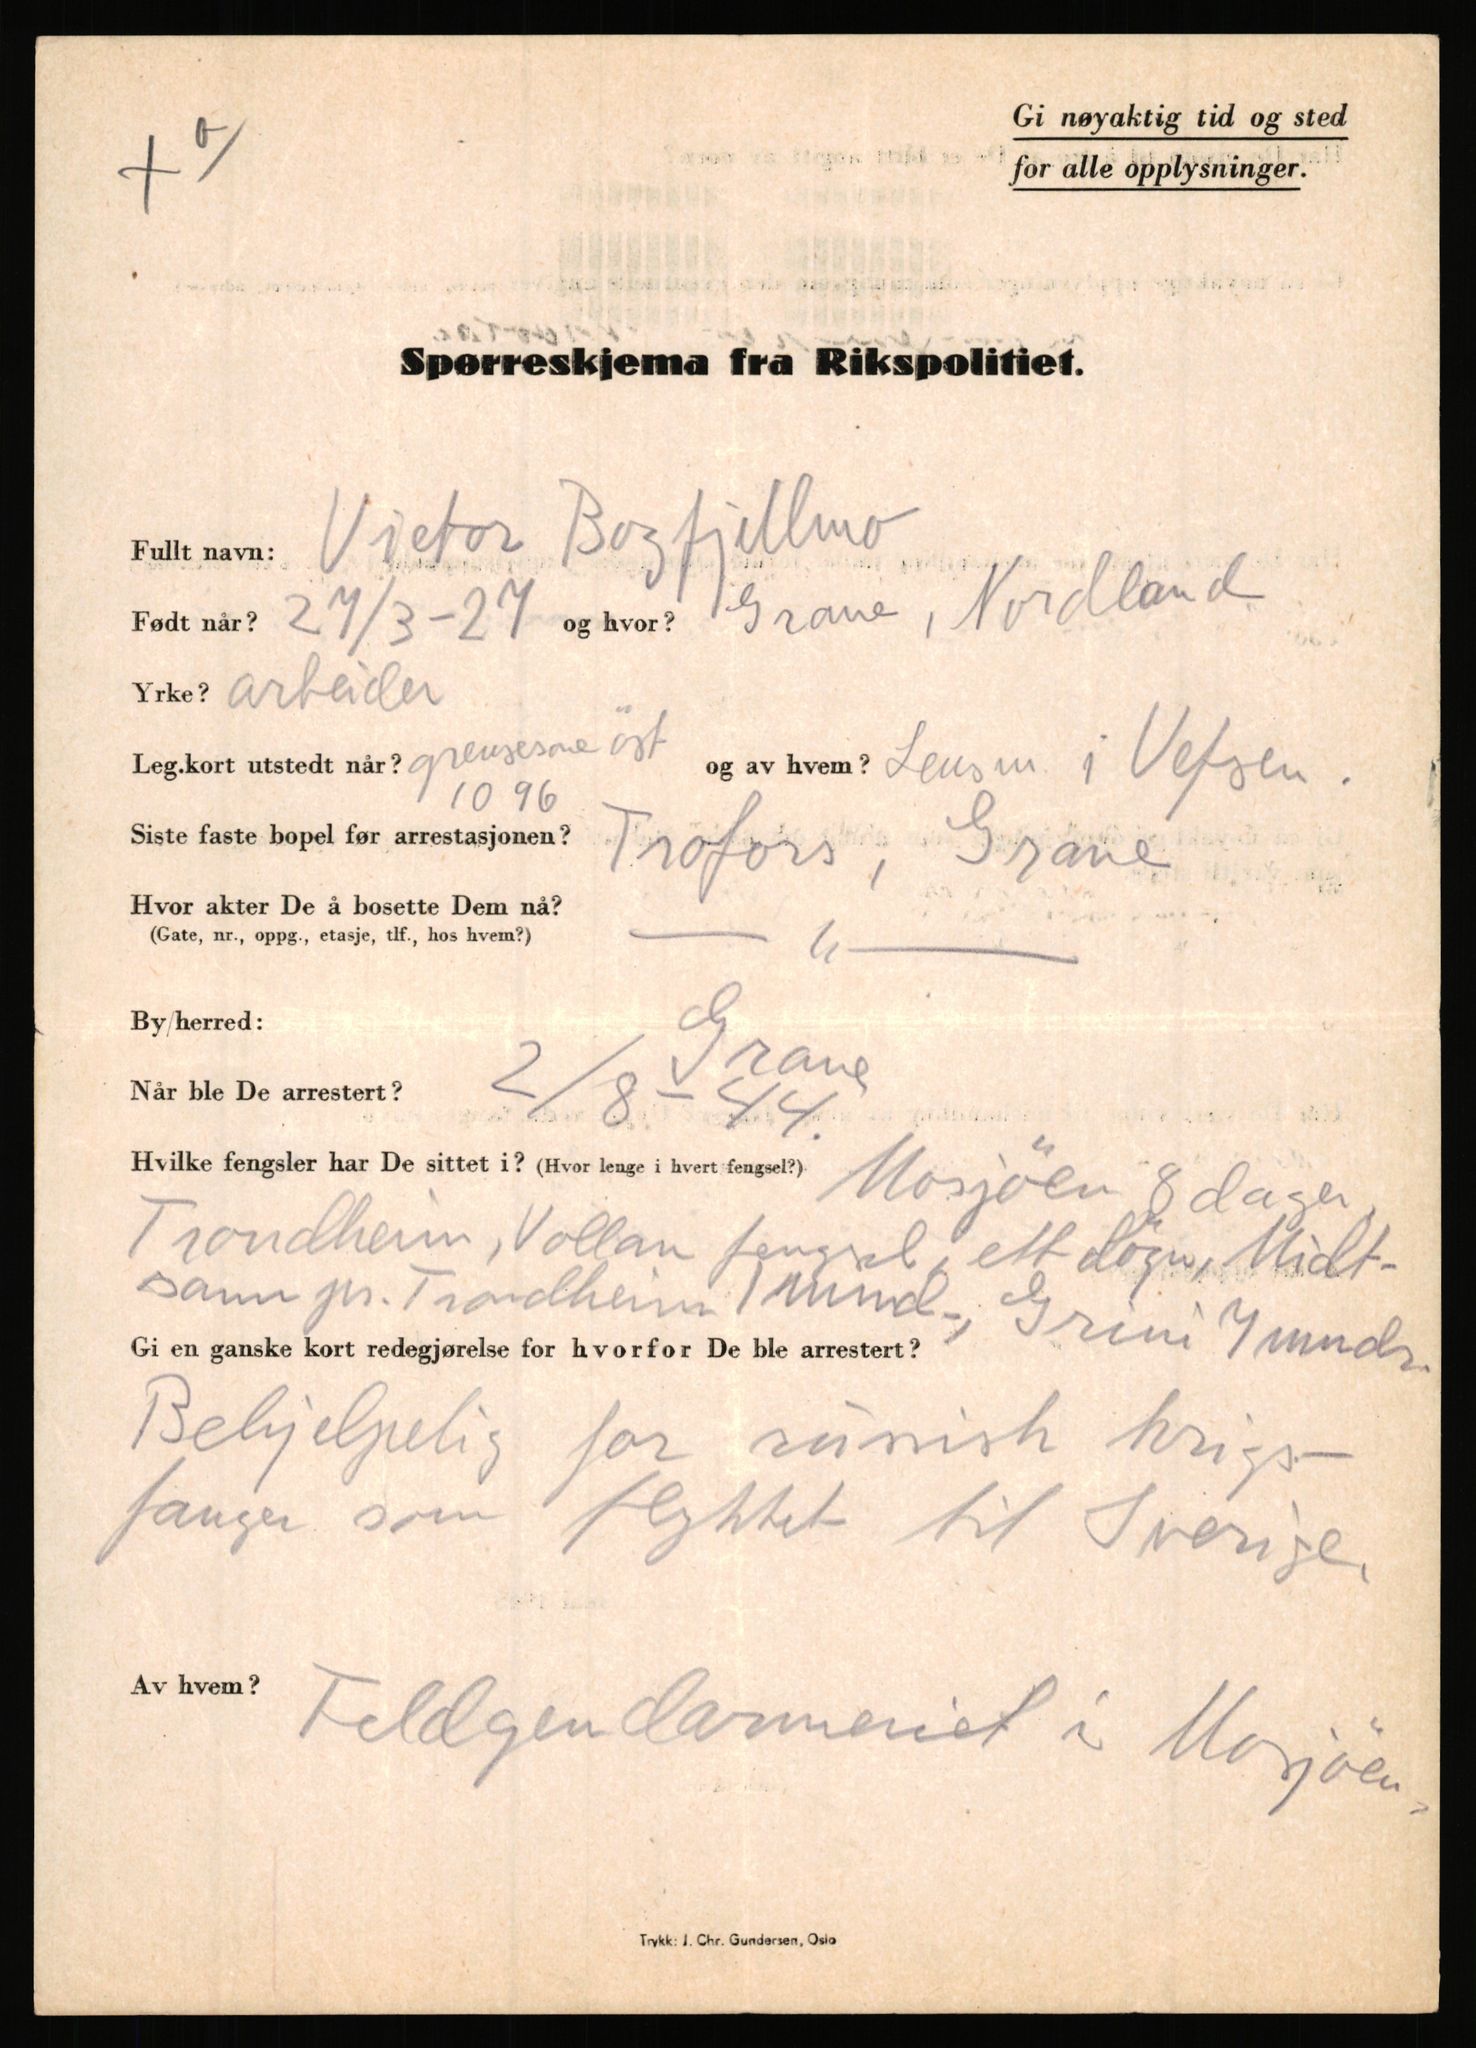 Gi nøyaktig tid og sted
for alle opplysninger.
Spørreskjema fra Rikspolitiet.
Fullt navn: Victor Bogfjellmo
Født når? 27/3-27 og hvor? Grane, Nordland
Yrke? arbeider
Leg.kort utstedt når? grensesone öst og av hvem? Lensm. i Vefsen.
1096
Siste faste bopel før arrestasjonen? Trofors, Grane
Hvor akter De å bosette Dem nå?
(Gate, nr., oppg., etasje, tlf., hos hvem?) — " —
By/herred: Grane
Når ble De arrestert? 2/8-44.
Hvilke fengsler har De sittet i? (Hvor lenge i hvert fengsel?) Mosjöen 8 dager,
Trondheim, Vollan fengsel, ett dögn, Midt-
sann pr. Trondheim 1 mnd., Grini 7 mndr.
Gi en ganske kort redegjørelse for hvorfor De ble arrestert?
Behjelpelig for russisk krigs-
fanger som flyktet til Sverige.
Av hvem? Feldgendarmeriet i Mosjöen.
Trykk: J. Chr. Gundersen, Oslo